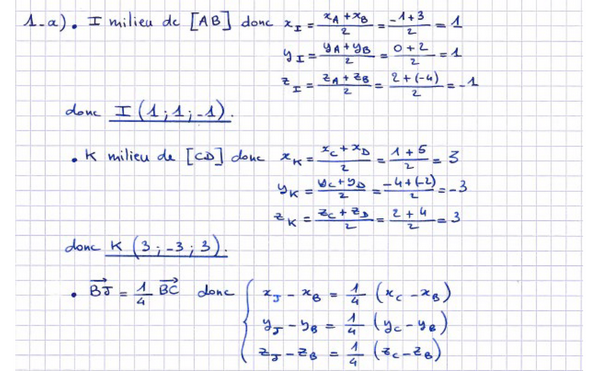 1-a) • I milieu de [AB] donc x_I = (x_A + x_B)/2 = (-1+3)/2 = 1
y_I = (y_A + y_B)/2 = (0+2)/2 = 1
z_I = (z_A + z_B)/2 = (2+(-4))/2 = -1
donc I (1 ; 1 ; -1).
• K milieu de [CD] donc x_K = (x_C + x_D)/2 = (1+5)/2 = 3
y_K = (y_C + y_D)/2 = (-4+(-2))/2 = -3
z_K = (z_C + z_D)/2 = (2+4)/2 = 3
donc K (3 ; -3 ; 3).
• \vec{BJ} = 1/4 \vec{BC} donc { x_J - x_B = 1/4 (x_C - x_B)
y_J - y_B = 1/4 (y_C - y_B)
z_J - z_B = 1/4 (z_C - z_B)